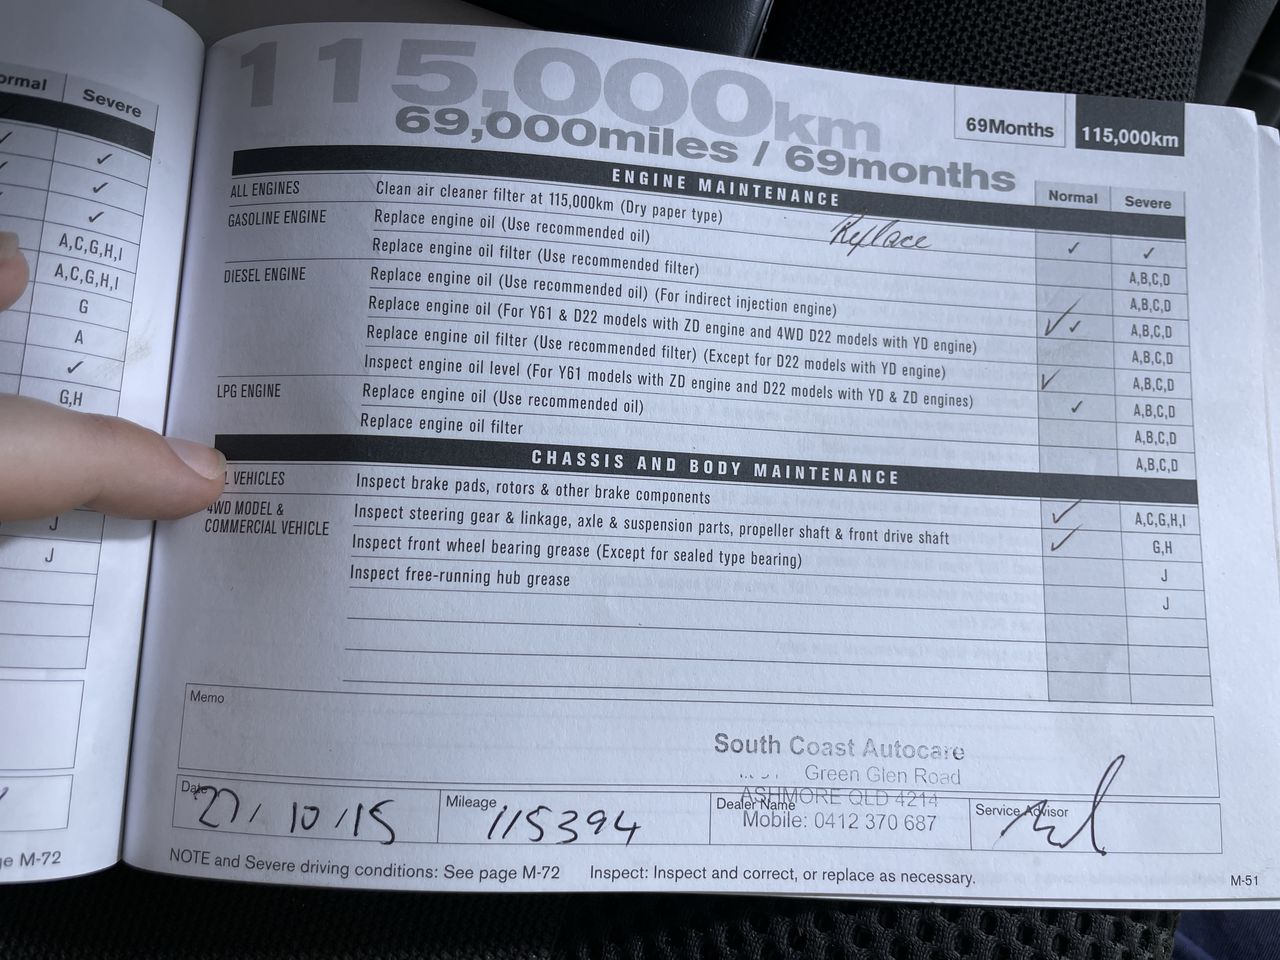 ormal Severe
✓ ✓
✓ ✓
✓ ✓
A,C,G,H,I
A,C,G,H,I
G
A
✓
G,H
J
J
ge M-72
115,000km
69,000miles / 69months
69Months 115,000km
ENGINE MAINTENANCE Normal Severe
ALL ENGINES Clean air cleaner filter at 115,000km (Dry paper type) Replace ✓ ✓
GASOLINE ENGINE Replace engine oil (Use recommended oil) A,B,C,D
Replace engine oil filter (Use recommended filter) A,B,C,D
DIESEL ENGINE Replace engine oil (Use recommended oil) (For indirect injection engine) A,B,C,D
Replace engine oil (For Y61 & D22 models with ZD engine and 4WD D22 models with YD engine) ✓ ✓ A,B,C,D
Replace engine oil filter (Use recommended filter) (Except for D22 models with YD engine) ✓ A,B,C,D
Inspect engine oil level (For Y61 models with ZD engine and D22 models with YD & ZD engines) ✓ A,B,C,D
LPG ENGINE Replace engine oil (Use recommended oil) A,B,C,D
Replace engine oil filter A,B,C,D
CHASSIS AND BODY MAINTENANCE
L VEHICLES Inspect brake pads, rotors & other brake components ✓ A,C,G,H,I
4WD MODEL & Inspect steering gear & linkage, axle & suspension parts, propeller shaft & front drive shaft ✓ G,H
COMMERCIAL VEHICLE Inspect front wheel bearing grease (Except for sealed type bearing) J
Inspect free-running hub grease J
Memo
South Coast Autocare
Green Glen Road
ASHMORE QLD 4214
Mobile: 0412 370 687
Date 27/10/15 Mileage 115394 Dealer Name Service Advisor
NOTE and Severe driving conditions: See page M-72 Inspect: Inspect and correct, or replace as necessary.
M-51